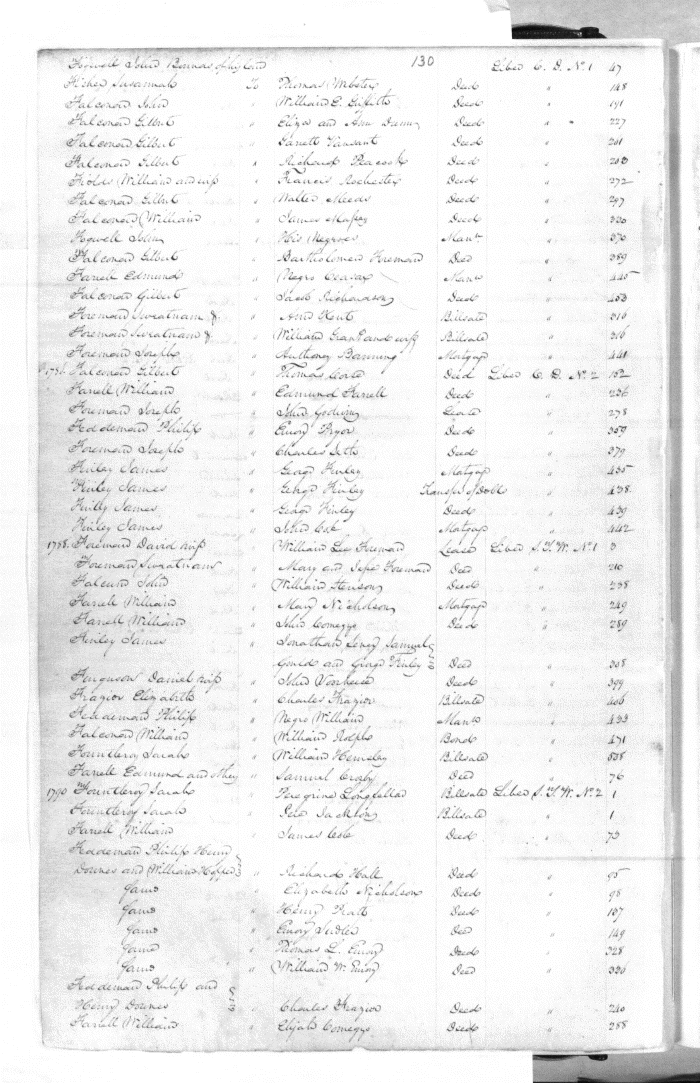 130
Fogwell John Liber C. D. No. 1 47
Fisher Susannah To Thomas Webster Deed " 148
Falconar John " William E. Griffith Deed " 191
Falconar Gilbert " Eliza and Ann Deed " 227
Falconar Gilbert " Garrett Deed " 201
Falconar Gilbert " Richard Peacock Deed " 203
Fields William and wife " Francis Rochester Deed " 272
Falconar Gilbert " Walter Meeds Deed " 297
Falconar William " James Massey Deed " 330
Fogwell John " His Negroes Manu 370
Falconar Gilbert " Bartholomew Foreman Deed " 389
Farrell Edmund " Negro Ceasar Manu " 445
Falconar Gilbert " Jacob Richardson Deed " 453
Foreman Sweatnam & " Ann Kent Billsale " 316
Foreman Sweatnam & " William Grant and wife Billsale " 316
Foreman Joseph " Anthony Banning Mortgage " 441
1786 Falconar Gilbert " Thomas Deed Liber C. D. No. 2 182
Farrell William " Edmund Farrell Deed " 236
Foreman Joseph " John Godwin Lease " 278
Feddeman Philip " Emory Pryor Deed " 359
Foreman Joseph " Charles Seth Deed " 379
Finley James " George Finley Mortgage " 435
Finley James " George Finley Transfer of Debts " 438
Finley James " George Finley Deed " 439
Finley James " John Mortgage " 442
1788 Foreman David & wife " William Lee Foreman Lease Liber S. T. W. No. 1 3
Foreman Sweatnam " Mary and Foreman Deed " 210
Falconar John " William Henson Deed " 238
Farrell William " Mary Nicholson Mortgage " 249
Farrell William " John Comegys Deed " 289
Finley James " Jonathan Samuel
Gould and George Finley Deed " 308
Ferguson Daniel & wife " John Vanheese Deed " 399
Frazier Elizabeth " Charles Frazier Billsale " 406
Feddeman Philip " Negro William Manu " 433
Falconar William " William Rolph Bond " 471
Fountleroy Sarah " William Hemsley Billsale " 508
Farrell Edmund and others " Samuel Crosby Deed " 76
1790 Fountleroy Sarah " Peregrine Longfellow Billsale Liber S. T. W. No. 2 1
Fountleroy Sarah " Billsale " 1
Farrell William " James Cole Deed " 73
Feddeman Philip Henry
Downes and William Hopper " Richard Hall Deed " 95
Same " Elizabeth Nicholson Deed " 98
Same " Henry Pratt Deed " 137
Same " Emory Sudler Deed " 149
Same " Thomas L. Emory Deed " 328
Same " William W. Emory Deed " 330
Feddeman Philip and
Henry Downes " Charles Frazier Deed " 240
Farrell William " Elijah Comegys Deed " 288